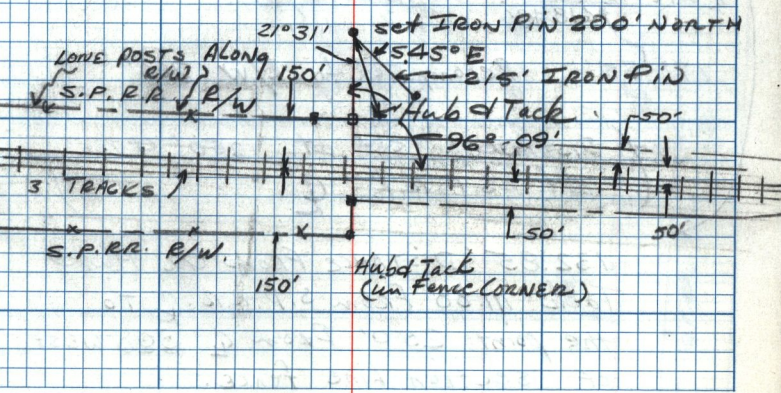 21°31'
set IRON PIN 200' NORTH
S.45°E
215' IRON PIN
LONE POSTS ALONG
R/W
150'
S.P.R.R. R/W
Hub & Tack
50'
96°-09'
3 TRACKS
S.P.RR. R/W.
50'
50'
150'
Hub & Tack
(in Fence CORNER)